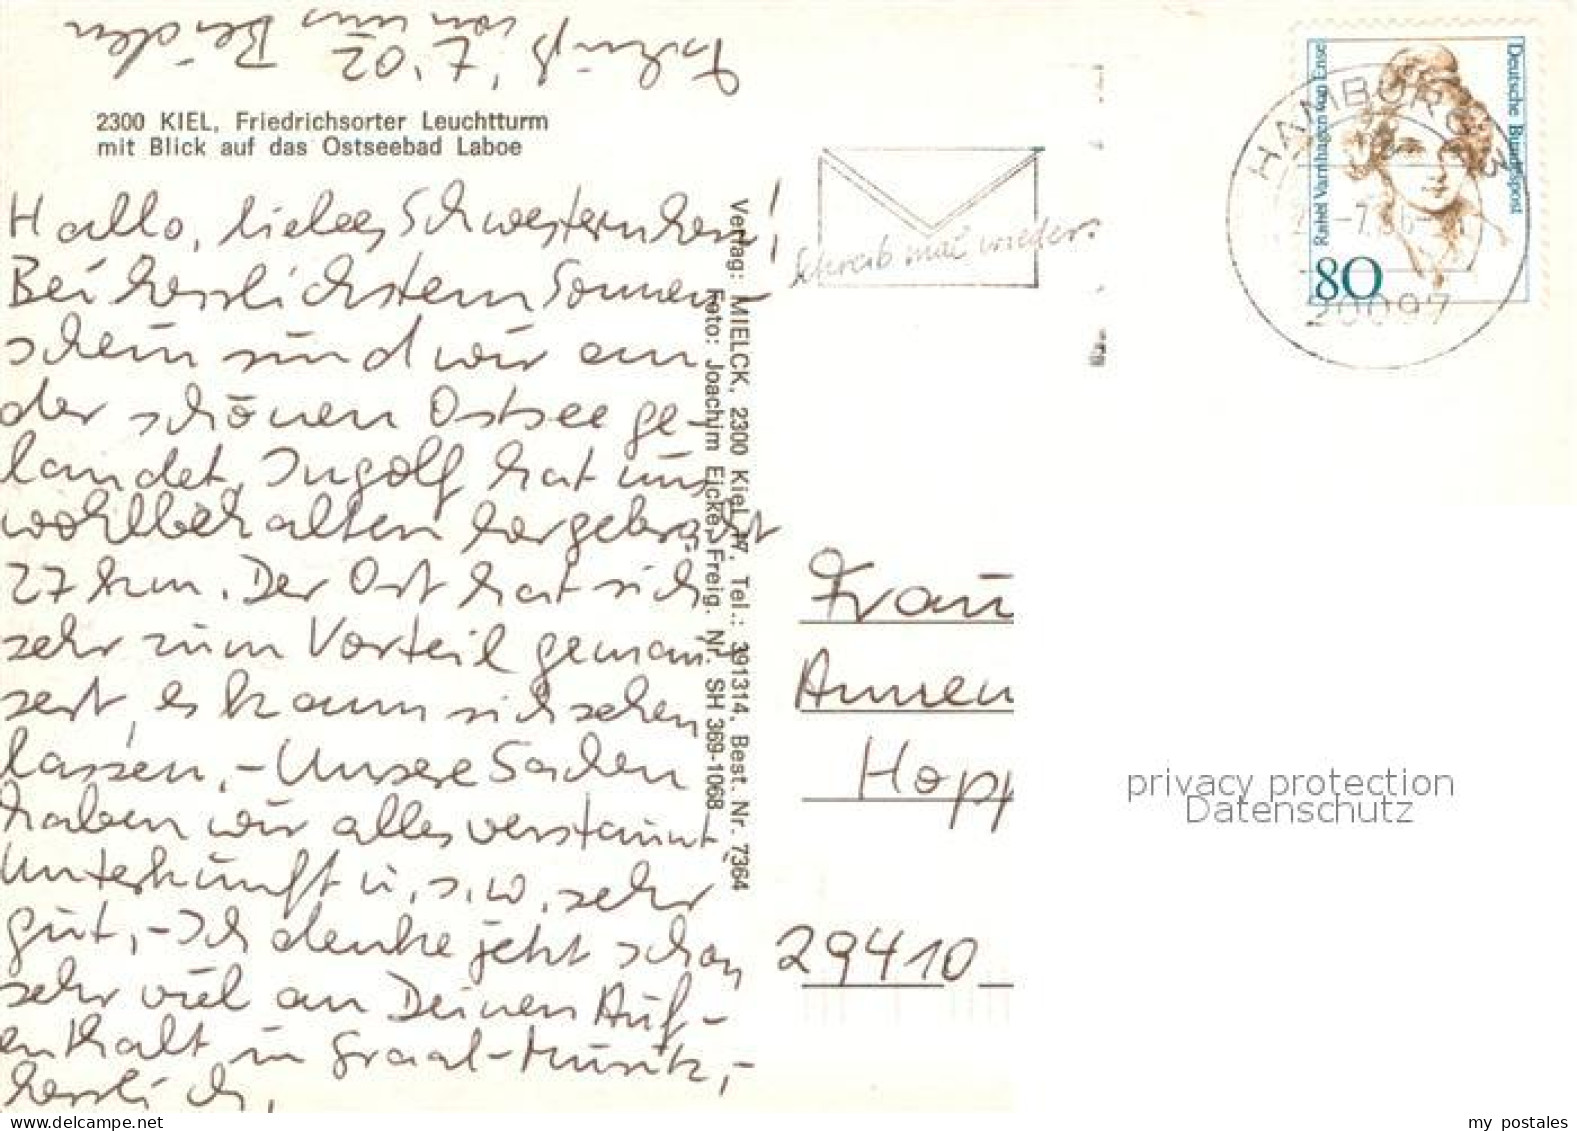 von uns Beiden
2300 KIEL, Friedrichsorter Leuchtturm
mit Blick auf das Ostseebad Laboe
Hallo, liebes Schwesternherz!
Bei herrlichstem Sonnen-
schein sind wir an
der schönen Ostsee ge-
landet, Ingolf hat uns
wohlbehalten hergebracht
27 km. Der Ort hat sich
sehr zum Vorteil gemau-
sert, es kann sich sehen
lassen,- Unsere Sachen
haben wir alles verstaut,
Unterkunft u. s. w. sehr
gut,- Ich denke jetzt schon
sehr viel an Deinen Auf-
enthalt in Graal-Müritz,-
herzlich,
Verlag: MIELCK, 2300 Kiel 17, Tel.: 391314, Best. Nr. 7364
Foto: Joachim Eicke, Freig. Nr. SH 369-1068
Schreib mal wieder
Deutsche Bundespost
Rahel Varnhagen von Ense
80
HAMBURG
20097
Frau
Annen
Hopp
29410
privacy protection
Datenschutz
www.delcampe.net
my_postales